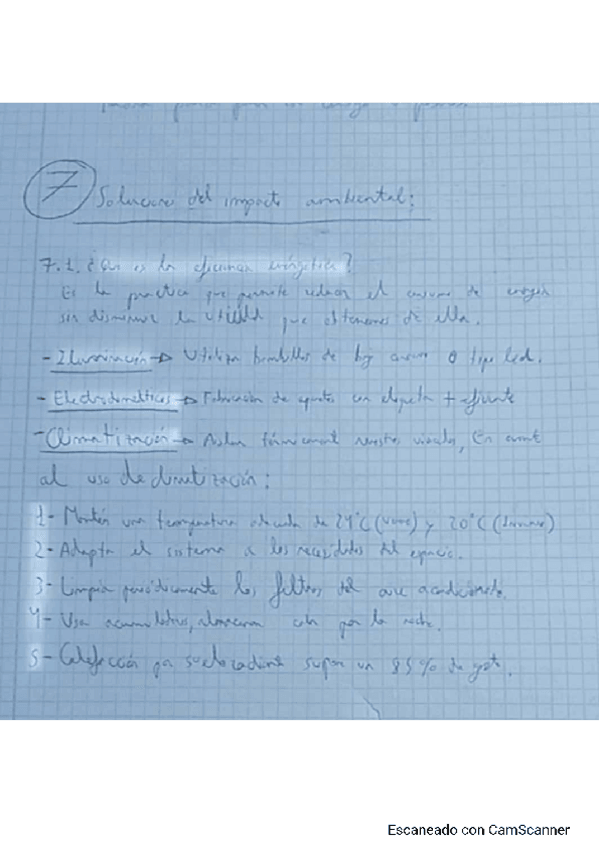 7 Soluciones del impacto ambiental:
7.1. ¿Que es la eficiencia energética?
Es la practica que permite reducir el consumo de energia
sin disminuir la utilidad que obtenemos de ella.
- Iluminación → Utiliza bombillas de bajo consumo o tipo led.
- Electrodomésticos → Fabricación de aparatos con etiqueta + eficiente
- Climatización → Aislar térmicamente nuestras viviendas, En cuanto
al uso de climatización:
1- Mantén una temperatura adecuada de 24°C (verano) y 20°C (Invierno)
2- Adapta el sistema a las necesidades del espacio.
3- Limpia periódicamente los filtros del aire acondicionado.
4- Usa acumuladores, almacenan calor por la noche.
5- Calefacción por suelo radiante supon un 85% de gasto.
Escaneado con CamScanner